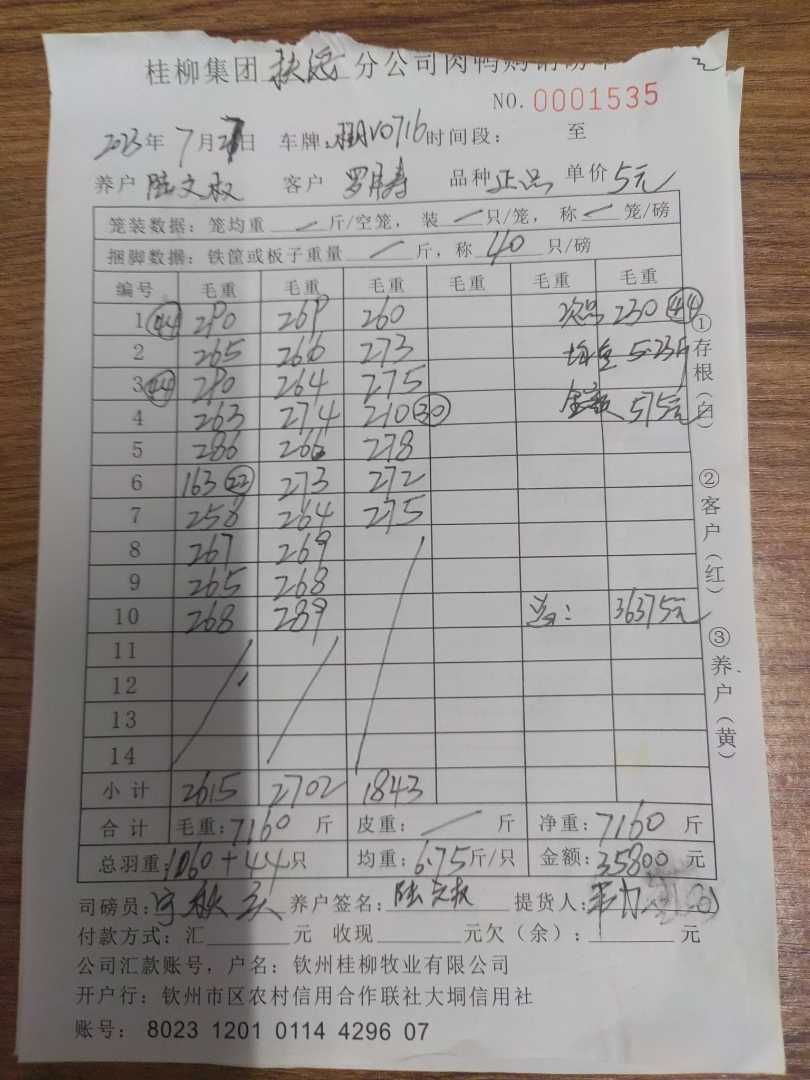 桂柳集团 扶绥 分公司肉鸭购销
NO. 0001535
2023年 7月27日 车牌: V0716 时间段: 至
养户 陆文权 客户 品种 正品 单价 5元
笼装数据: 笼均重 / 斤/空笼, 装 / 只/笼, 称 / 笼/磅
捆脚数据: 铁筐或板子重量 / 斤, 称 40 只/磅
编号 毛重 毛重 毛重 毛重 毛重 毛重
1 (44) 280 269 260 次品 230 (44)
2 265 266 273 均重 5.23斤
3 (44) 280 264 275
4 263 274 210 (30) 金额 575元
5 286 266 278
6 163 (22) 273 272
7 258 264 275
8 267 269
9 265 268
10 268 289 总: 36375元
11
12
13
14
小计 2615 2702 1843
合计 毛重: 7160 斤 皮重: / 斤 净重: 7160 斤
总羽重: 1060+44只 均重: 6.75斤/只 金额: 35800 元
司磅员: 养户签名: 陆文权 提货人:
付款方式: 汇 元 收现 元欠(余): 元
公司汇款账号, 户名: 钦州桂柳牧业有限公司
开户行: 钦州市区农村信用合作联社大垌信用社
账号: 8023 1201 0114 4296 07
①存根(白)
②客户(红)
③养户(黄)